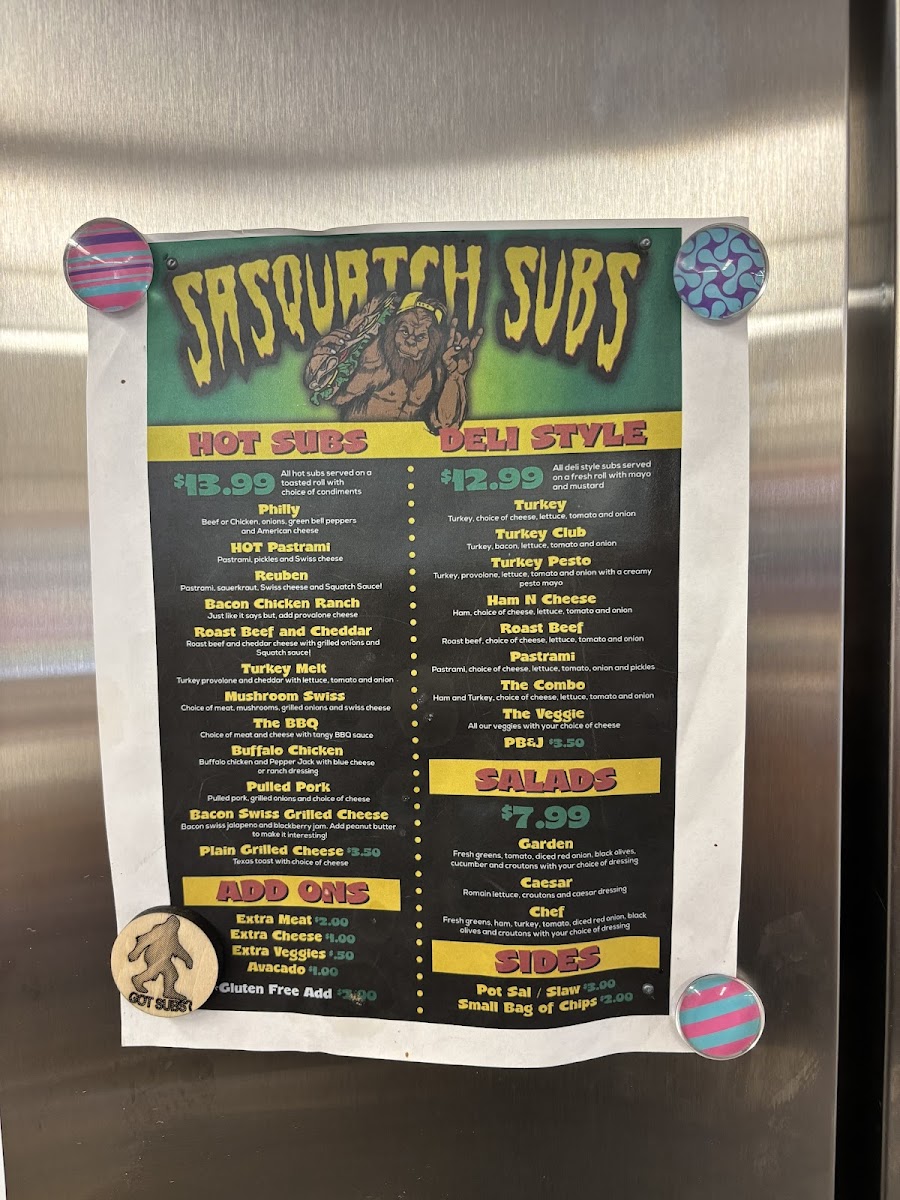 SASQUATCH SUBS
HOT SUBS
$13.99
All hot subs served on a
toasted roll with
choice of condiments
Philly
Beef or Chicken, onions, green bell peppers
and American cheese
HOT Pastrami
Pastrami, pickles and Swiss cheese
Reuben
Pastrami, sauerkraut, Swiss cheese and Squatch Sauce!
Bacon Chicken Ranch
Just like it says but, add provalone cheese
Roast Beef and Cheddar
Roast beef and cheddar cheese with grilled onions and
Squatch sauce!
Turkey Melt
Turkey provolone and cheddar with lettuce, tomato and onion
Mushroom Swiss
Choice of meat, mushrooms, grilled onions and swiss cheese
The BBQ
Choice of meat and cheese with tangy BBQ sauce
Buffalo Chicken
Buffalo chicken and Pepper Jack with blue cheese
or ranch dressing
Pulled Pork
Pulled pork, grilled onions and choice of cheese
Bacon Swiss Grilled Cheese
Bacon swiss jalapeno and blackberry jam. Add peanut butter
to make it interesting!
Plain Grilled Cheese $3.50
Texas toast with choice of cheese
ADD ONS
Extra Meat $2.00
Extra Cheese $1.00
Extra Veggies $.50
Avacado $1.00
Gluten Free Add
GOT SUBS?
DELI STYLE
$12.99
All deli style subs served
on a fresh roll with mayo
and mustard
Turkey
Turkey, choice of cheese, lettuce, tomato and onion
Turkey Club
Turkey, bacon, lettuce, tomato and onion
Turkey Pesto
Turkey, provolone, lettuce, tomato and onion with a creamy
pesto mayo
Ham N Cheese
Ham, choice of cheese, lettuce, tomato and onion
Roast Beef
Roast beef, choice of cheese, lettuce, tomato and onion
Pastrami
Pastrami, choice of cheese, lettuce, tomato, onion and pickles
The Combo
Ham and Turkey, choice of cheese, lettuce, tomato and onion
The Veggie
All our veggies with your choice of cheese
PB&J $3.50
SALADS
$7.99
Garden
Fresh greens, tomato, diced red onion, black olives,
cucumber and croutons with your choice of dressing
Caesar
Romain lettuce, croutons and caesar dressing
Chef
Fresh greens, ham, turkey, tomato, diced red onion, black
olives and croutons with your choice of dressing
SIDES
Pot Sal / Slaw $3.00
Small Bag of Chips $2.00